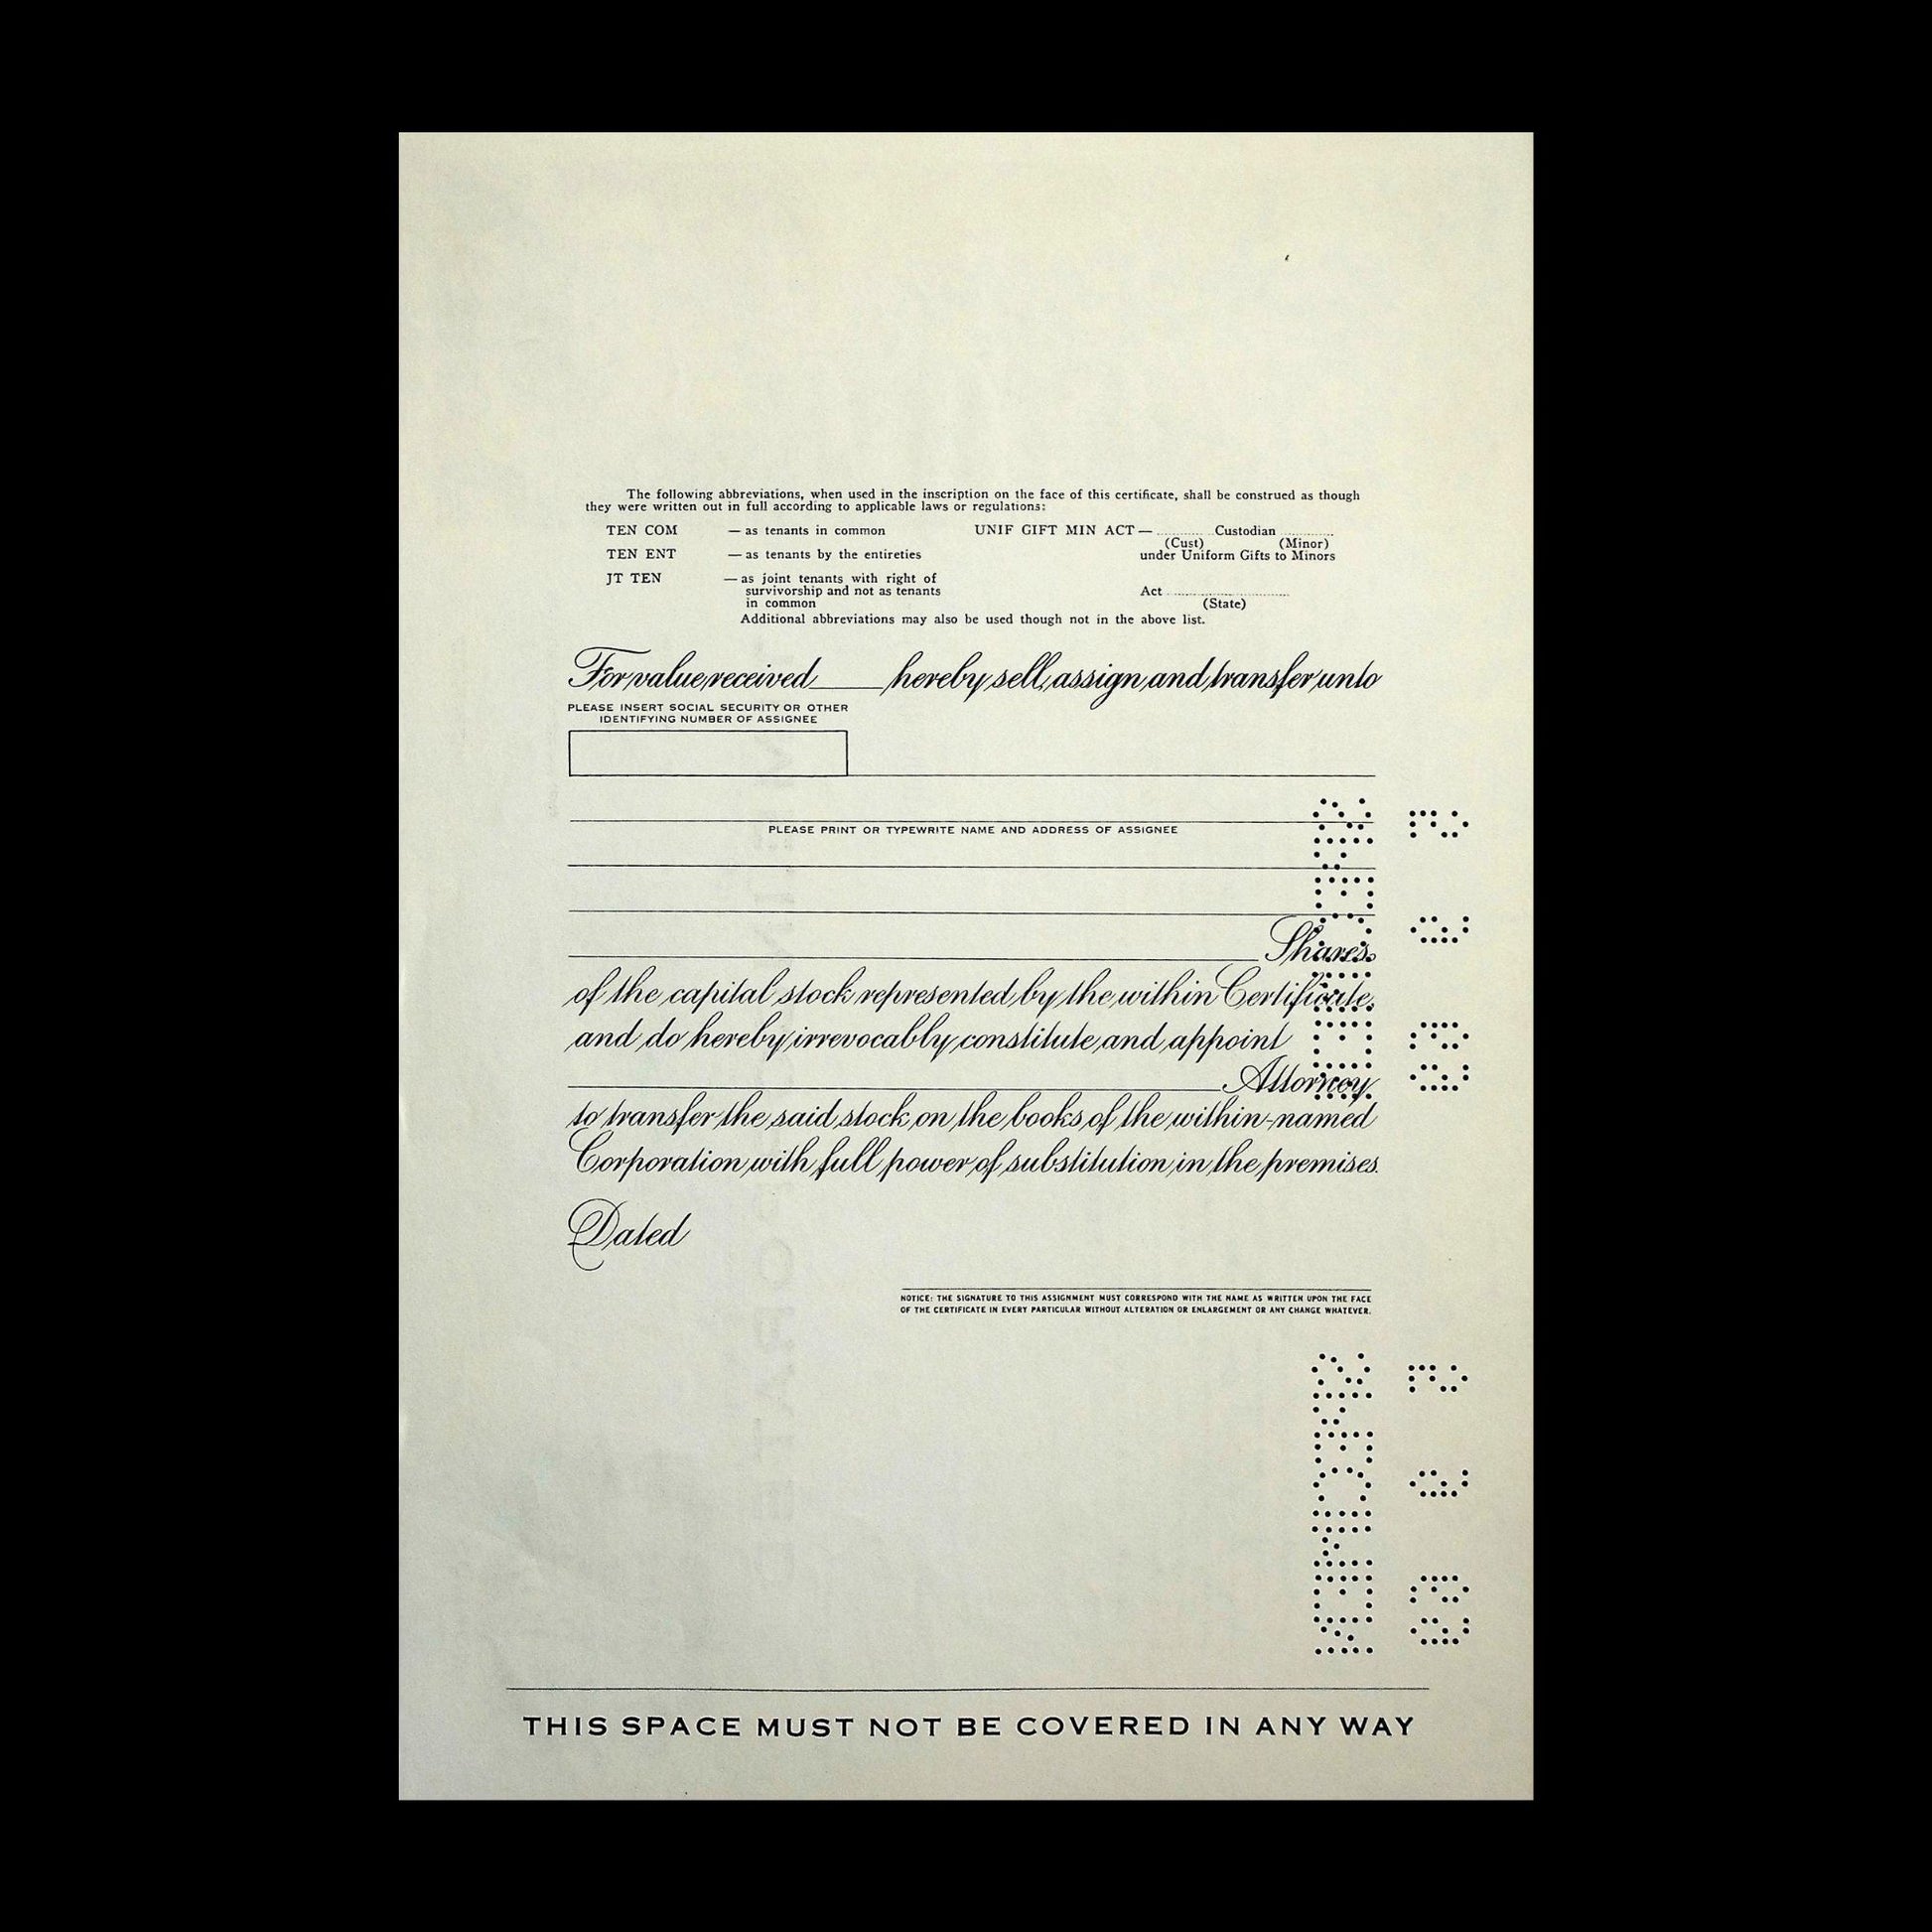 The following abbreviations, when used in the inscription on the face of this certificate, shall be construed as though
they were written out in full according to applicable laws or regulations:
TEN COM — as tenants in common
TEN ENT — as tenants by the entireties
JT TEN — as joint tenants with right of
survivorship and not as tenants
in common
UNIF GIFT MIN ACT — ............ Custodian ............
(Cust) (Minor)
under Uniform Gifts to Minors
Act ..............................
(State)
Additional abbreviations may also be used though not in the above list.
For value received, ____ hereby sell, assign and transfer unto
PLEASE INSERT SOCIAL SECURITY OR OTHER
IDENTIFYING NUMBER OF ASSIGNEE
PLEASE PRINT OR TYPEWRITE NAME AND ADDRESS OF ASSIGNEE
Shares
of the capital stock represented by the within Certificate,
and do hereby irrevocably constitute and appoint
Attorney
to transfer the said stock on the books of the within-named
Corporation with full power of substitution in the premises.
Dated
NOTICE: THE SIGNATURE TO THIS ASSIGNMENT MUST CORRESPOND WITH THE NAME AS WRITTEN UPON THE FACE
OF THE CERTIFICATE IN EVERY PARTICULAR WITHOUT ALTERATION OR ENLARGEMENT OR ANY CHANGE WHATEVER.
THIS SPACE MUST NOT BE COVERED IN ANY WAY